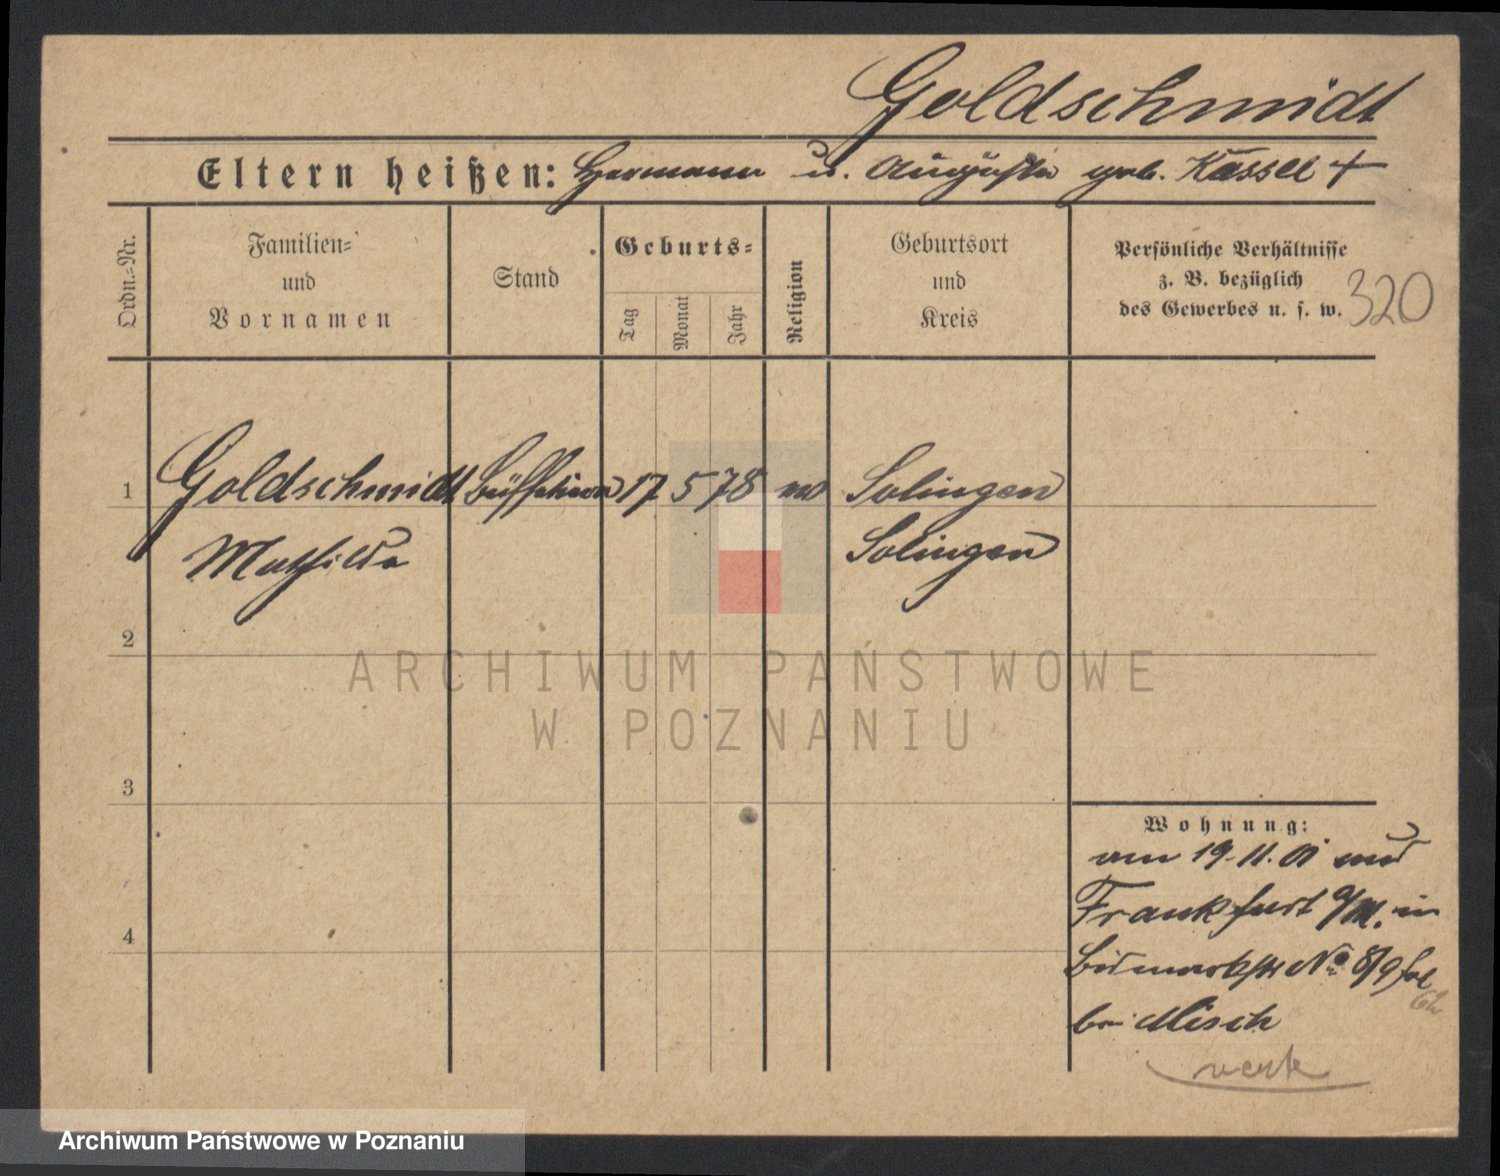 Goldschmidt
Eltern heißen: Hermann u. Auguste geb. Kassel +
Ordn.-Nr.
Familien-
und
Vornamen
Stand
Geburts-
Tag
Monat
Jahr
Religion
Geburtsort
und
Kreis
Persönliche Verhältnisse
z. B. bezüglich
des Gewerbes u. s. w.
320
1 Goldschmidt 17 5 78 Solingen
Mathilde Solingen
2
ARCHIWUM PAŃSTWOWE
W POZNANIU
3
Wohnung:
am 19.11.01
Frankfurt a/M. in
Bismarckstr No 8/9
bei Misch
4
Archiwum Państwowe w Poznaniu